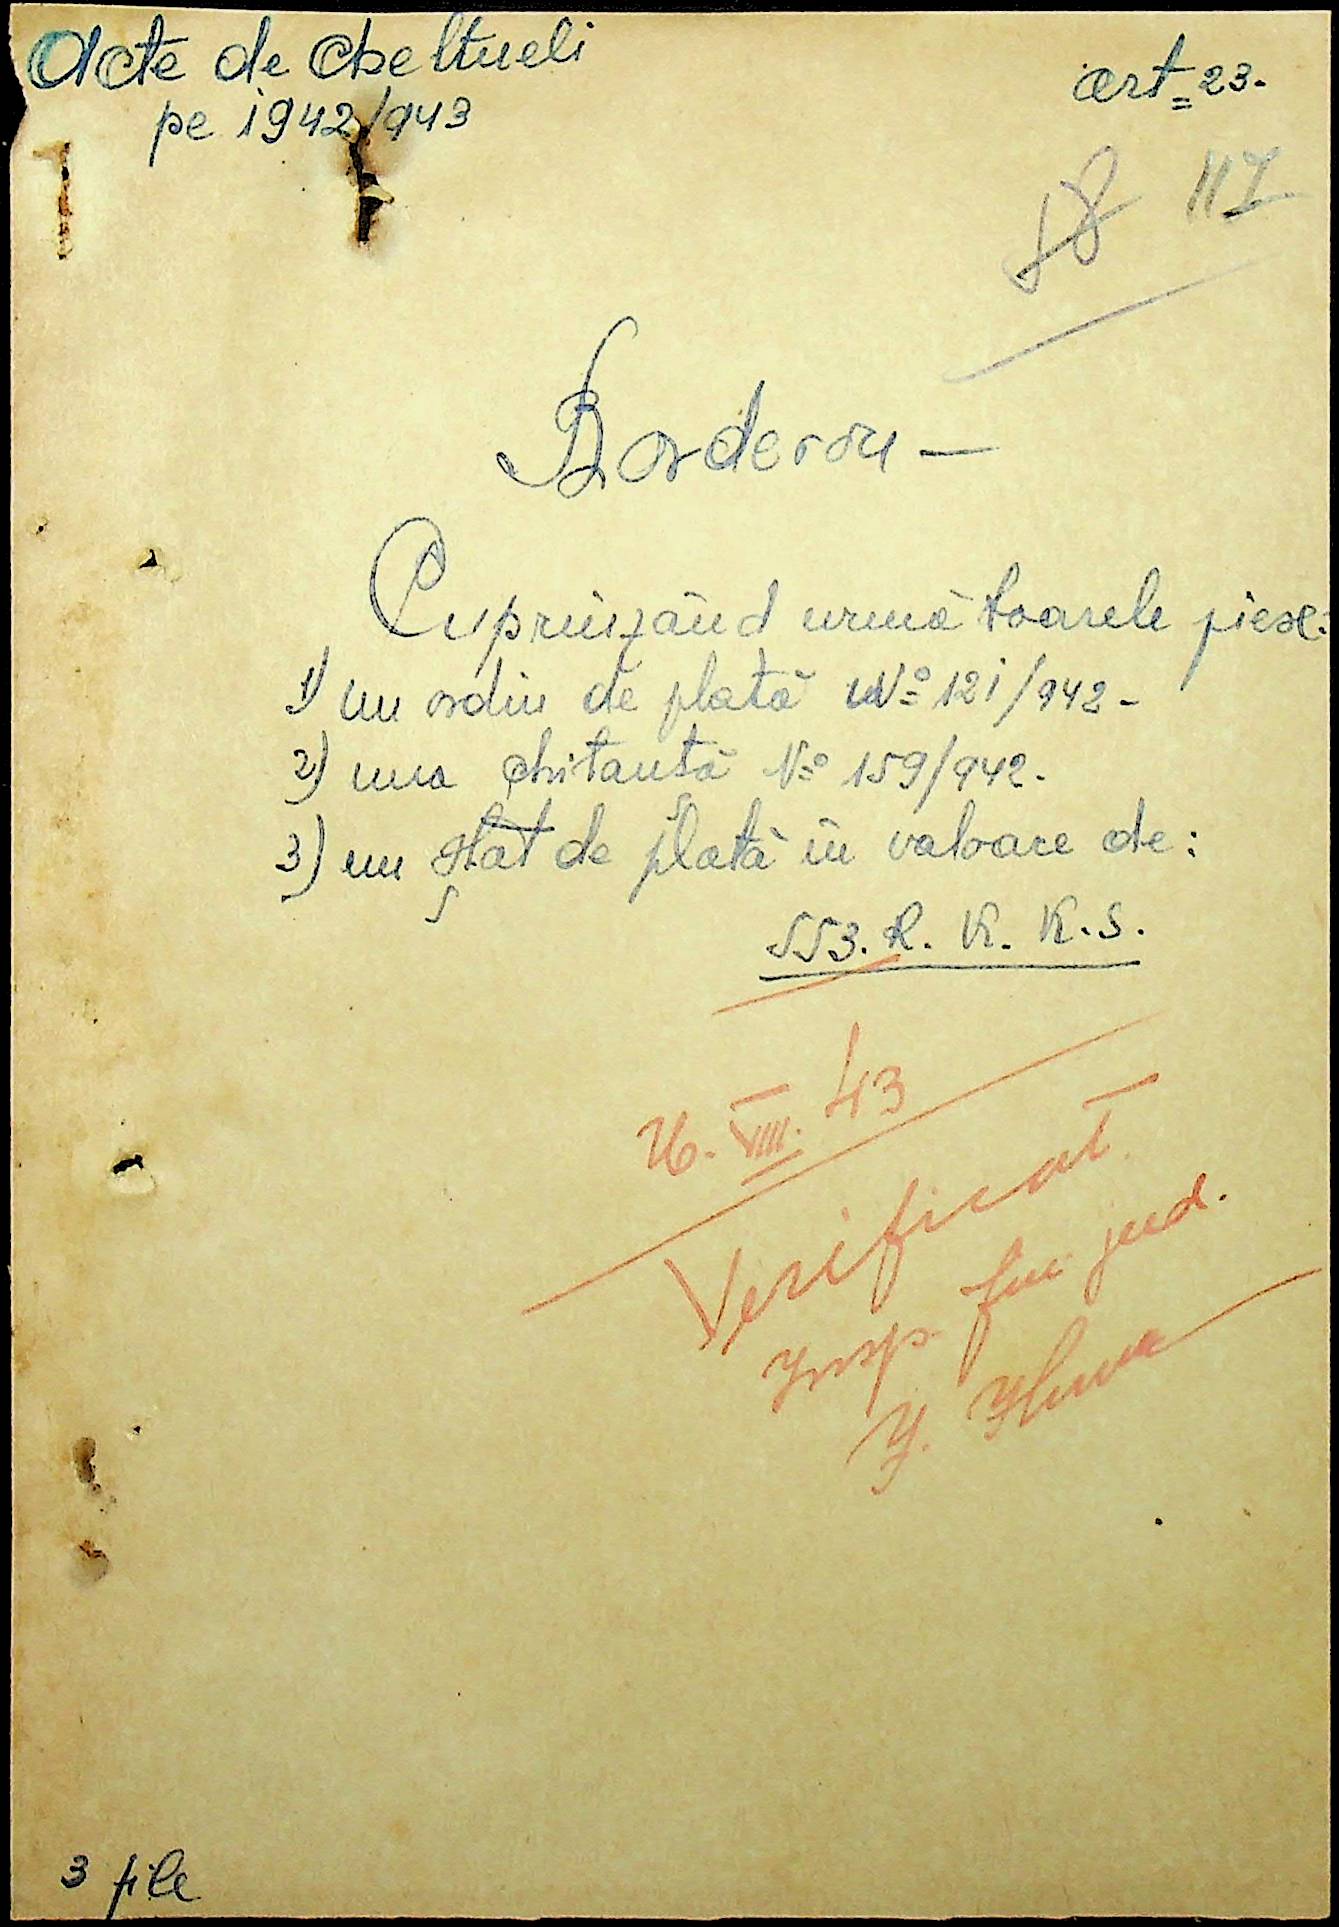 Acte de Cheltueli
pe 1942/943
art = 23.
117
Borderou —
Cuprinzând urmâtoarele piese:
1) un ordin de plată No 121/942 -
2) una chitantă No 159/942.
3) un stat de plată in valoare de:
553. R. K. K. S.
26. VIII. 43
Verificat
Insp fin jud.
3 file